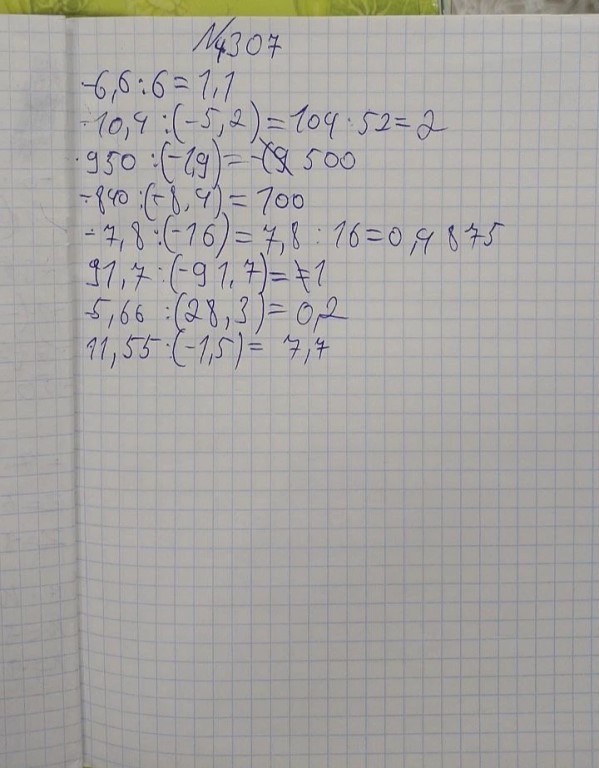 №4307
-6,6:6=1,1
-10,4:(-5,2)=104:52=2
-950:(-1,9)=-500
-840:(-8,4)=100
-7,8:(-16)=7,8:16=0,4875
91,7:(-91,7)=-1
-5,66:(28,3)=0,2
11,55:(-1,5)=7,7